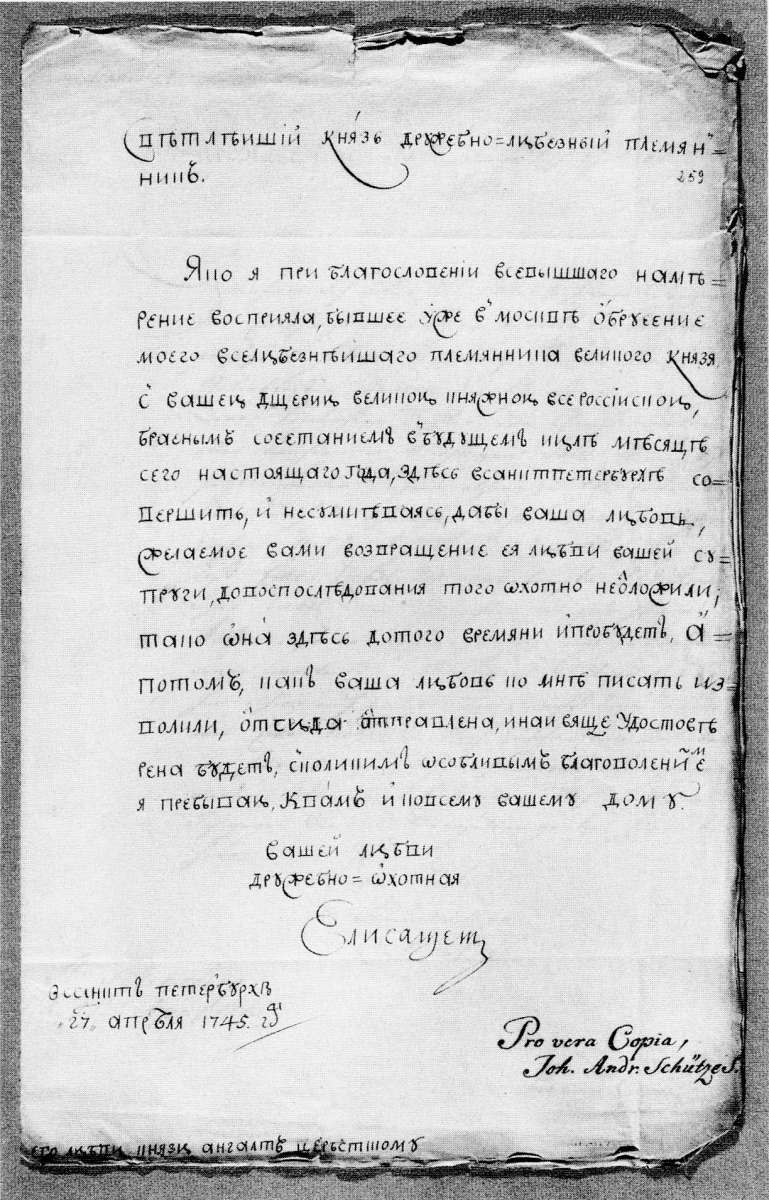 Свѣтлѣишій князь дружебно=любезный племян=
никъ. 259
Яко я при благословеніи всевышшаго намѣ=
рение восприяла, бывшее уже в москвѣ обручение
моего вселюбезнѣишаго племянника великого князя
с вашею дщерию великою княжною всероссіискою,
брачнымъ сочетаниемъ в будущемъ июлѣ мѣсяцѣ
сего настоящаго года, здѣсь всанктпетербурхѣ со=
вершить, и несумнѣваясь, дабы ваша любовь,
желаемое вами возвращение ея любви вашей су=
пруги, допоспослѣдования того охотно неотложили;
тако она здѣсь дотого времяни ипробудетъ, а=
потомъ, какъ ваша любовь ко мнѣ писать из=
волили, отсюда отправлена, инаи вяще удостовѣ
рена будетъ, сколикимъ особливымъ благоволениемъ
я пребываю, квамъ и ковсему вашему дому.
вашей любви
дружебно=охотная
Елисавет
всанктъ петербурхѣ
27 апрѣля 1745. гд
Pro vera Copia,
Joh. Andr. Schütze S.
его любви князю ангалтъ цербстскому